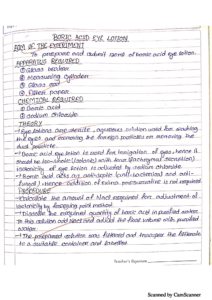 BORIC ACID EYE LOTION
AIM OF THE EXPERIMENT
To prepare and submit 30ml of boric acid eye lotion.
APPARATUS REQUIRED
① Glass beaker
② Measuring cylinder
③ Glass rod
④ Filter paper
CHEMICAL REQUIRED
① Boric acid
② sodium chloride
THEORY
* Eye lotions are sterile, aqueous solution used for washing
the eyes and removing the foreign particles or removing the
dust particle.
* Boric acid eye lotion is used for irrigation of eyes, hence it
should be isotonic with tears (lachrymal secretion)
isotonicity of eye lotion is adjusted by sodium chloride.
* Boric acid acts as antiseptic (antibacterial and anti-
fungal) Hence addition of extra preservative is not required
PROCEDURE
* Calculate the amount of NaCl required for adjustment of
isotonicity by freezing point method.
* Dissolve the required quantity of boric acid in purified water.
In this solution add NaCl and adjust the final volume with purified
water.
* The prepared solution was filtered and transfer the filtrate
to a suitable container and labelled
Teacher's Signature
Scanned by CamScanner